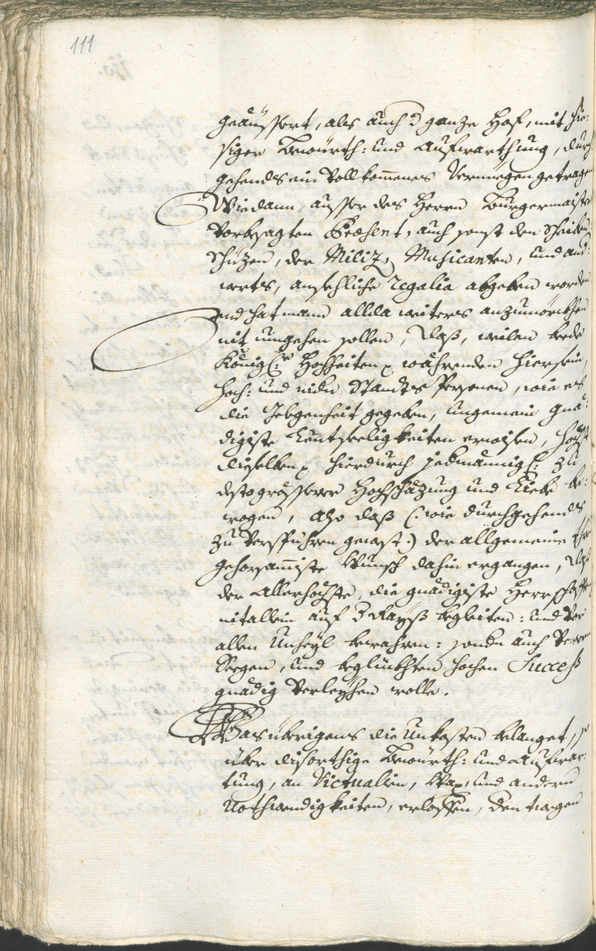 111
geäussert, als auch d ganze Hof, mit hie-
siger Bewürth: und Aufwarthung, durch
gehends ein vollkommenes Vermegen getragen
Wie dann, ausser des Herrn Burgermaister
vorbesagten, auch sonst den Scheiben
Schüzen, der Miliz, Musicanten, und and:
wertes, ansehliche Regalia abgeben worden
und hat mann allda weiteres anzumörckhen
nit umgehen sollen, daß, weilen beede
Königl: Hochheiten währenden Hiersein,
hoch: und nidn Standts Persohnen, wie es
die gebgenheit gegeben, ungemein gnä-
digiste Leüthseeligkeiten erwisen, höchst
dieselben hierdurch jedmännigl: zu
desto grösserer Hochschäzung und Liebe be-
wogen, also daß (: wie durchgehends
zu verspühren gewest :) der allgemeine
gehorsammiste Wunsch dahin ergangen, daß
der Allerhöchste, die gnädigiste Herrschafft
nit allein auf d Rayß begleiten: und vor
allen Unheyl bewahren: sondn auch
Seegen, und beglückhten hochen Success
gnädig verleyhen wolle.
Was übrigens die Unkosten belanget, so
über disorthige Bewürth: und Aufwar-
tung, an Victualien, Wax, und andern
Nothwendigkeiten, erloffen, den tragen